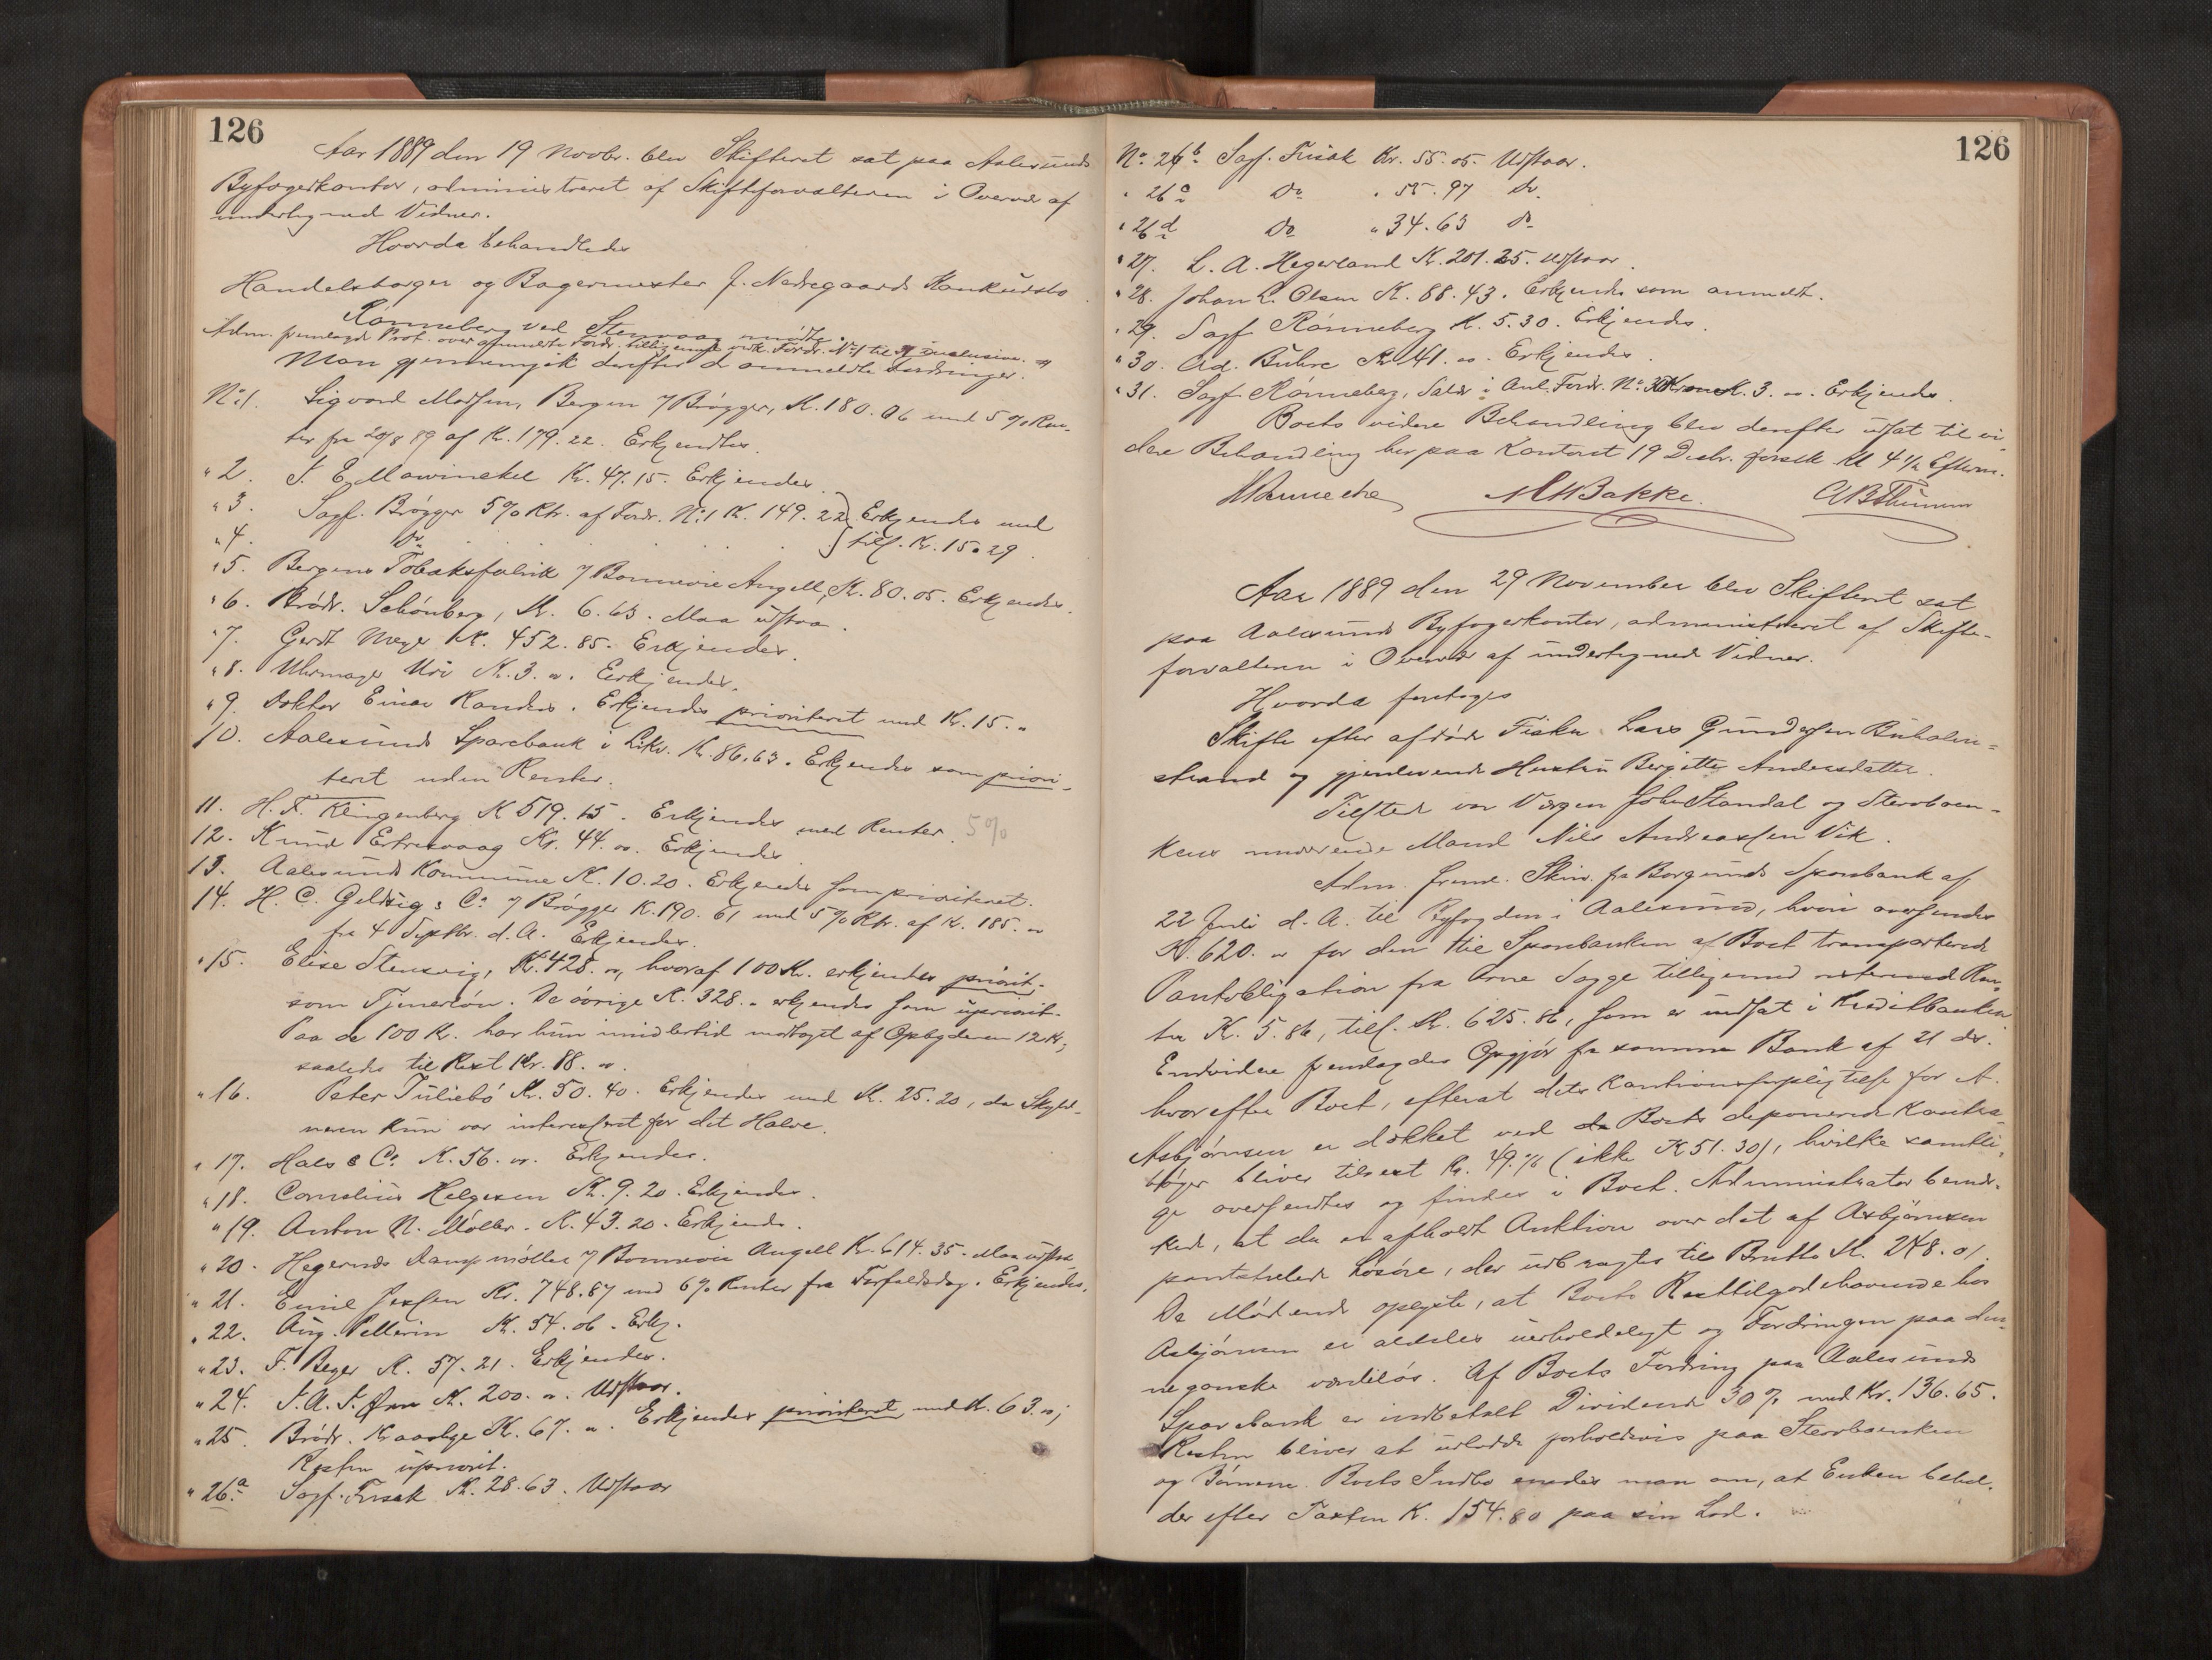 126
Aar 1889 den 19 Novbr. blev Skifteret sat paa Aalesunds
Byfogedkontor, administreret af Skifteforvalteren i Overvær af
undertegnede Vidner.
Hvorda behandledes
Handelsborger og Bagermester J. Nedregaards Konkursbo
Rønneberg ved Stenvaag mødte.
Adm. fremlagde Prot. over anmeldte Fordr. tilligemed vedk. Fordr. No 1 til 31 inclusive.
Man gjennemgik derefter de anmeldte Fordringer.
No 1. Sigvard Madsen, Bergen v/ Brøgger, K. 180.06 med 5 % Ren-
ter fra 20/8 89 af Kr. 179.22. Erkjendtes.
" 2. J. E. Mowinckel Kr. 47.15. Erkjendes.
" 3. Sagf. Brøgger 5 % Rtr. af Fordr. No 1 K. 149.22 } Erkjendes med
" 4. Do. . . . . } tils. Kr. 15.29.
" 5. Bergens Tobaksfabrik v/ Bonnevie Angell, K. 80.05. Erkjendes.
" 6. Brødr. Schönberg, K. 6.63. Maa udstaa.
" 7. Gerdt Meyer Kr. 452.85. Erkjendes.
" 8. Uhrmager Uri K. 3. ". Erkjendes.
" 9. Doktor Einar Randers. Erkjendes prioriteret med Kr. 15. "
10. Aalesunds Sparebank i Likv. Kr. 86.63. Erkjendes som priori-
teret uden Renter.
11. H. F. Klingenberg K 519.15. Erkjendes med Renter 5 %
12. Knud Ertresvaag Kr. 44. ". Erkjendes.
13. Aalesunds Kommune K. 10.20. Erkjendes som prioriteret.
14. H. C. Geldzig & Co v/ Brøgger K. 190.61 med 5 % Rtr. af K. 185. "
fra 4 Septbr. d. A. Erkjendes.
" 15. Elise Stensvig, K. 428. ", hvoraf 100 Kr. erkjendes priorit.
som Tjenerløn. De øvrige K. 328. " erkjendes som upriorit.
Paa de 100 K. har hun imidlertid modtaget af Opbyderen 12 K;
saaledes til Rest Kr. 88. ".
" 16. Peter Juliebø K. 50.40. Erkjendes med K. 25.20, da Skyld-
neren kun var interesseret for det Halve.
" 17. Hals & Co K. 56. ". Erkjendes.
" 18. Cornelius Helgesen K. 9.20. Erkjendes.
" 19. Anton N. Møller. K. 43.20. Erkjendes.
" 20. Hegernds Dampmølle v/ Bonnevie Angell Kr. 614.35. Maa udstaa.
" 21. Emil Jessen Kr. 748.87 med 6 % Renter fra Forfaldsdag. Erkjendes.
" 22. Aug. Pellerin K. 54.06. Erkj.
" 23. F. Beyer K. 57.21. Erkjendes.
" 24. J. A. J. Øen K. 200. ". Udstaar.
" 25. Brødr. Kraaslye K. 67. ". Erkjendes prioriteret med K. 63. ";
Resten upriorit.
" 26a. Sagf. Frisak K. 28.63. Udstaar
126
No 26b. Sagf. Frisak Kr. 55.05. Udstaar.
" 26c Do " 55.97 Do
" 26d Do " 34.63 Do
" 27. L. A. Hegerland K. 201.25. Udstaar.
" 28. Johan L. Olsen K. 88.43. Erkjendes som anmeldt.
" 29. Sagf. Rønneberg K. 5.30. Erkjendes.
" 30. Ad. Buhre K 41. ". Erkjendes.
" 31. Sagf. Rønneberg, Salær i Anl. Fordr. No 30 K. 3. ". Erkjendes.
Boets videre Behandling blev derefter udsat til vi-
dere Behandling her paa Kontoret 19 Decbr. førstk. Kl 4 1/2 Efterm.
MBakke. CBThunem
Aar 1889 den 29 November blev Skifteret sat
paa Aalesunds Byfogedkontor, administreret af Skifte-
forvalteren i Overvær af undertegnede Vidner.
Hvorda foretoges
Skifte efter afdøde Fisker Lars Gundersen Buholm-
strand og gjenlevende Hustru Bergitte Andersdatter.
Tilstede var Værgen John Standal og Stervboen-
kens nuværende Mand Nils Andreassen Vik.
Adm. freml. Skriv. fra Borgunds Sparebank af
22 Juli d. A. til Byfogden i Aalesund, hvori oversendes
K. 620. " for den til Sparebanken af Boet transporterede
Pantobligation fra Arne Sagge tilligemed Ren-
ter K. 5.86, tils. Kr. 625.86, som er indsat i Kreditbanken
Endvidere fremlagdes Opgjør fra samme Bank af 21 ds.
hvorefter Boet, efterat dets Kautionsforpligtelse for A.
Asbjørnsen er dækket ved de Boets deponerede Kontra-
bøger bliver tilrest Kr. 49.76 (ikke K 51.30), hvilke samtli-
ge oversendtes og findes i Boet. Administrator bemær-
kede, at der er afholdt Auktion over det af Asbjørnsen
pantsatte Løsøre, der udbragtes til Brutto K. 248.01.
De Mødende oplyste, at Boets Resttilgodehavende hos
Asbjørnsen er aldeles uerholdeligt og Fordringen paa den-
ne ganske værdiløs. Af Boets Fordring paa Aalesunds
Sparebank er indbetalt Dividende 30 % med Kr. 136.65.
Resten bliver at udlodde forholdsvis paa Stervboenken
og Børnene. Boets Indbo enedes man om, at Enken behol-
der efter Taxten K. 154.80 paa sin Lod.